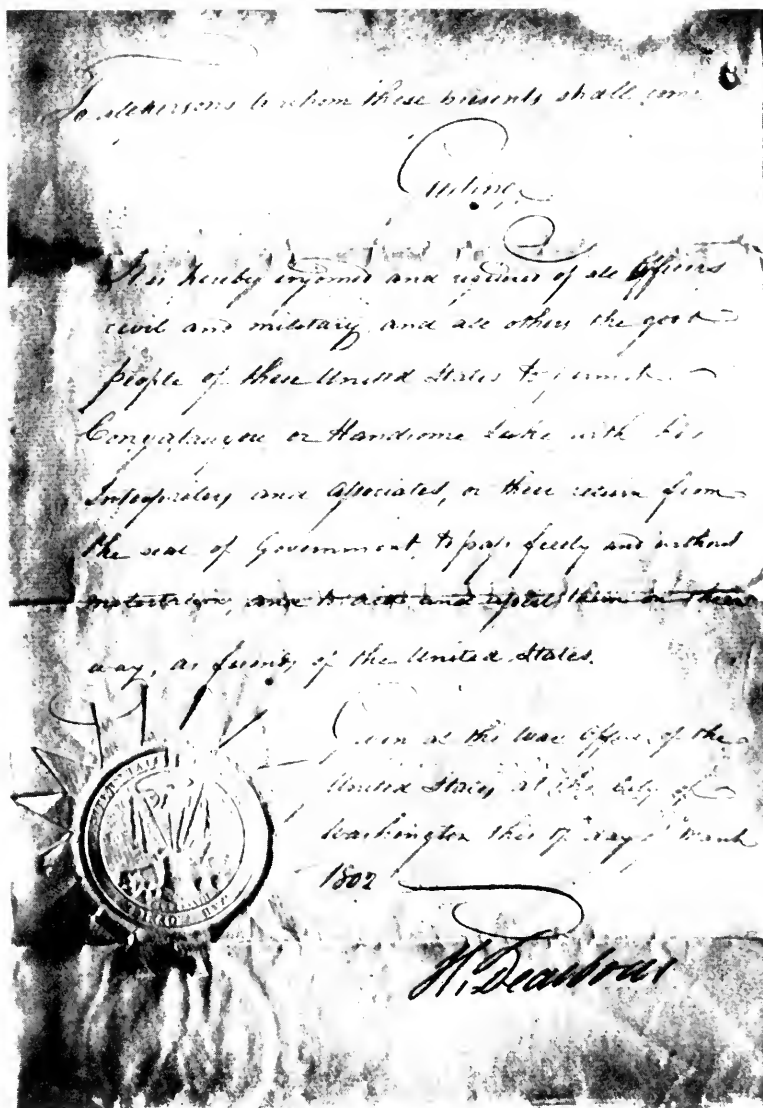 To all persons to whom these presents shall come
Greeting,
It is hereby enjoined and required of all Officers
civil and military, and all others the good
people of these United States to permit
Conyatauyou or Handsome Lake with his
Interpreters and Associates, on their return from
the seat of Government, to pass freely and without
molestation, and to aid and assist them on their
way, as friends of the United States.
Given at the War Office of the
United States at the City of
Washington this day of March
1802
H. Dearborn